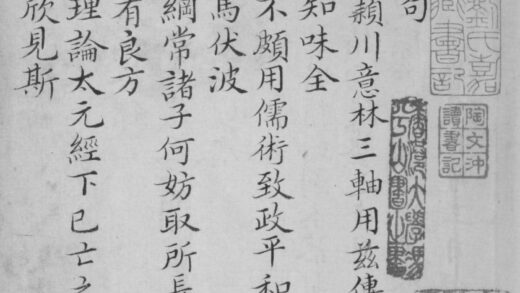 句
潁川意林三軸用茲傳
知味全
不頗用儒術致政平和
馬伏波
綱常諸子何妨取所長
有良方
理論太元經下已亡
欣見斯
陶文沖
讀書記